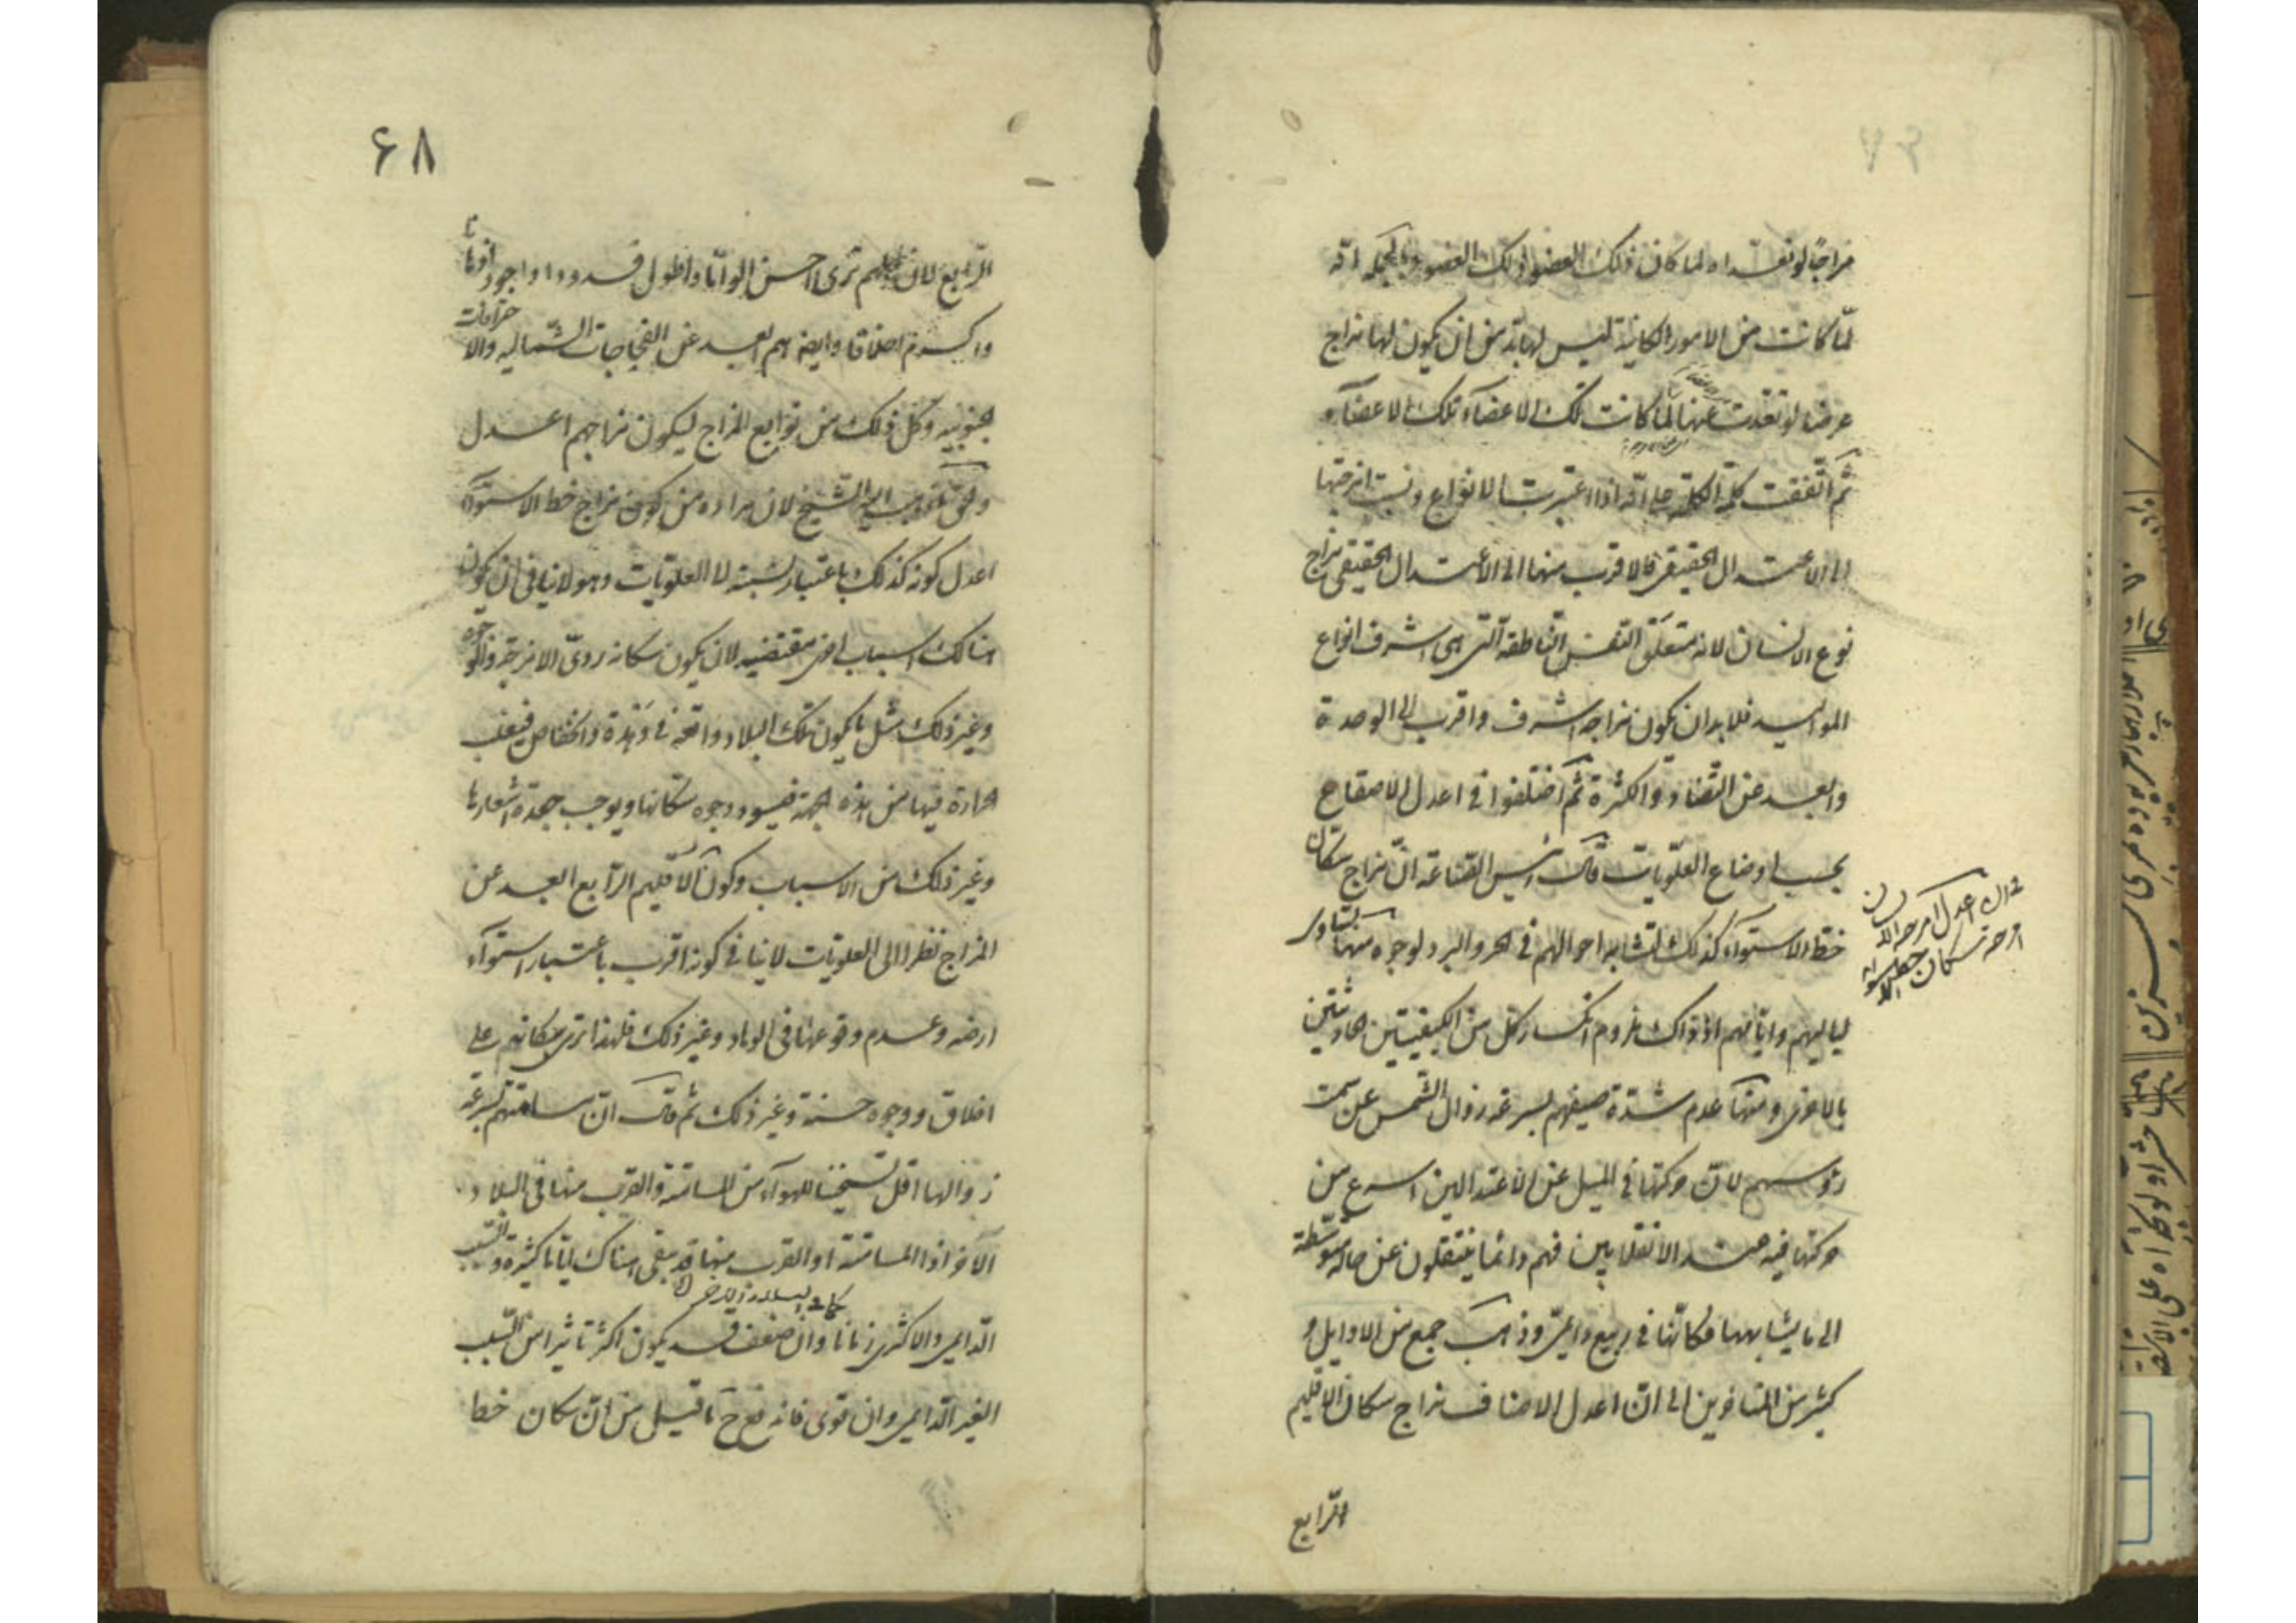 مزاجًا لو تعداه لما كان ذلك العضو ذلك العضو وبالجمله انه
لمّا كانت من الامور الكاينة ليس لها بدّ من ان يكون لها مزاج
عرضا لو تعدت عنها لما كانت تلك الاعضآء تلك الاعضآء
ثم اتّفقت كلمة الكلّ على انّه اذا اعتبرت الانواع ونسبت امزجتها
الى الاعتدال الحقيقى فالاقرب منها الى الاعتدال الحقيقى مزاج
نوع الانسان لانه متعلّق النفس الناطقه التى هى اشرف انواع
المواليد فلا بد ان يكون مزاجه اشرف واقرب الى الوحدة
وابعد عن التضاد والكثرة ثمّ اختلفوا فى اعدل الاصقاع
بحسب اوضاع العلويّات قال رئيس الصناعة انّ مزاج سكان
خطّ الاستوآء كذلك لتشابه احوالهم فى الحر والبرد لوجوه منها تساوى
لياليهم وايامهم اذ ذاك لزوم انكسار كل من الكيفيتين الحادثتين
بالاخرى ومنها عدم شدّة صيفهم لسرعه زوال الشمس عن سمت
رؤسهم لانّ حركتها فى الميل عن الاعتدالين اسرع من
حركتها فيه عند الانقلابين فهم دائما ينتقلون عن حالة متوسّطة
الى ما يشابهها فكانّها فى ربيع دائمىّ وذهب جمع من الاوايل و
كثير من المتاخرين الى انّ اعدل الاصناف مزاج سكان الاقليم
الرّابع
اعدل امزجه
امزجة سكان خط الاستوا
۶۸
الرّابع لان ترى احسن الوانا واطول قدودا واجود اذهانا
واكرم اخلاقا وايضا هم ابعد عن الفجاجات الشّماليه والاحتراقات
الجنوبيه وكل ذلك من توابع المزاج ليكون مزاجهم اعدل
والحق ما ذهب اليه الشّيخ لان مراده من كون مزاج خط الاستوآء
اعدل كونه كذلك باعتبار نسبته الى العلويّات وهو لا ينافى ان يكون
هنالك اسباب اخرى مقتضيه لان يكون سكانه ردىّ الامزجة والوجوه
وغير ذلك مثل ما يكون تلك البلاد واقعة فى وَهْدة وانخفاض فيغلب
الحرارة فيها من هذه الجهة فيسود وجوه سكانها ويوجب جعدة اشعارها
وغير ذلك من الاسباب وكون الاقليم الرّابع ابعد عن
المزاج نظرا الى العلويّات لا ينافى كونه اقرب باعتبار استوآء
ارضه وعدم وقوعها فى الوهاد وغير ذلك فلهذا ترى سكانهم على
اخلاق ووجوه حسنة وغير ذلك ثم قال انّ مسامتتهم لسرعة
زوالها اقل تسخينا للهوآء من المسامتة والقرب منها فى البلاد
الآخر اذ المسامتة او القرب منها قد يبقى هناك ايّاما كثيرة والسّبب
كما فى البلاد الاخر
الدّايمى والاكثرى زمانا وان ضعف قد يكون اكثر تاثيرا من السّبب
الغير الدّايمى وان قوى فاندفع ح ما قيل من انّ سكان خطا